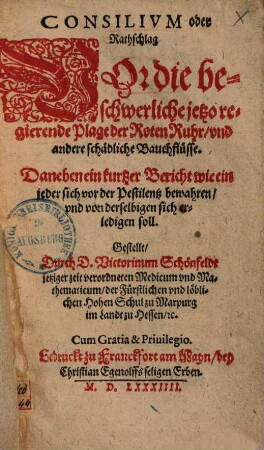 CONSILIVM oder
Rathschlag
FOr die be-
schwerliche jetzo re-
gierende Plage der Roten Ruhr/ vnd
andere schädliche Bauchflüsse.
Daneben ein kurtzer Bericht wie ein
jeder sich vor der Pestilentz bewahren/
vnd von derselbigen sich er-
ledigen soll.
Gestellt/
Durch D. Victorinum Schönfeldt
jetziger zeit verordneten Medicum vnd Ma-
thematicum/ der Fürstlichen vnd löbli-
chen Hohen Schul zu Marpurg
im Landt zu Hessen/ ꝛc.
Cum Gratia & Priuilegio.
Gedruckt zu Franckfort am Mayn/ bey
Christian Egenolffs seligen Erben.
M. D. LXXXIIII.
AUGSBURG
44